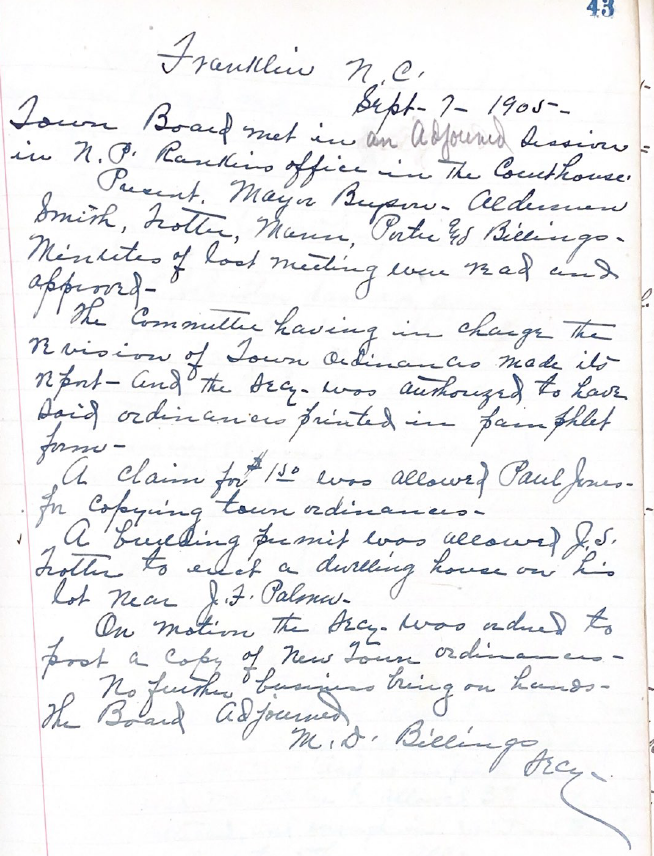 43
Franklin N.C.
Sept- 7- 1905-
Town Board met in an Adjourned Session
in N.P. Rankins office in the Courthouse.
Present, Mayor Bryson- Aldermen
Smith, Trotter, Mann, Porter and Billings-
Minutes of last meeting were read and
approved-
The Committee having in charge the
revision of Town Ordinances made its
report- and the Secy- was authorized to have
said ordinances printed in pamphlet
form-
A claim for $1.50 was allowed Paul Jones-
for copying town ordinances-
A building permit was allowed J.S.
Trotter to erect a dwelling house on his
lot near J.F. Palmer-
On motion the Secy- was ordered to
post a copy of New Town ordinances-
No further business being on hands-
The Board Adjourned
M.D. Billings
Secy-